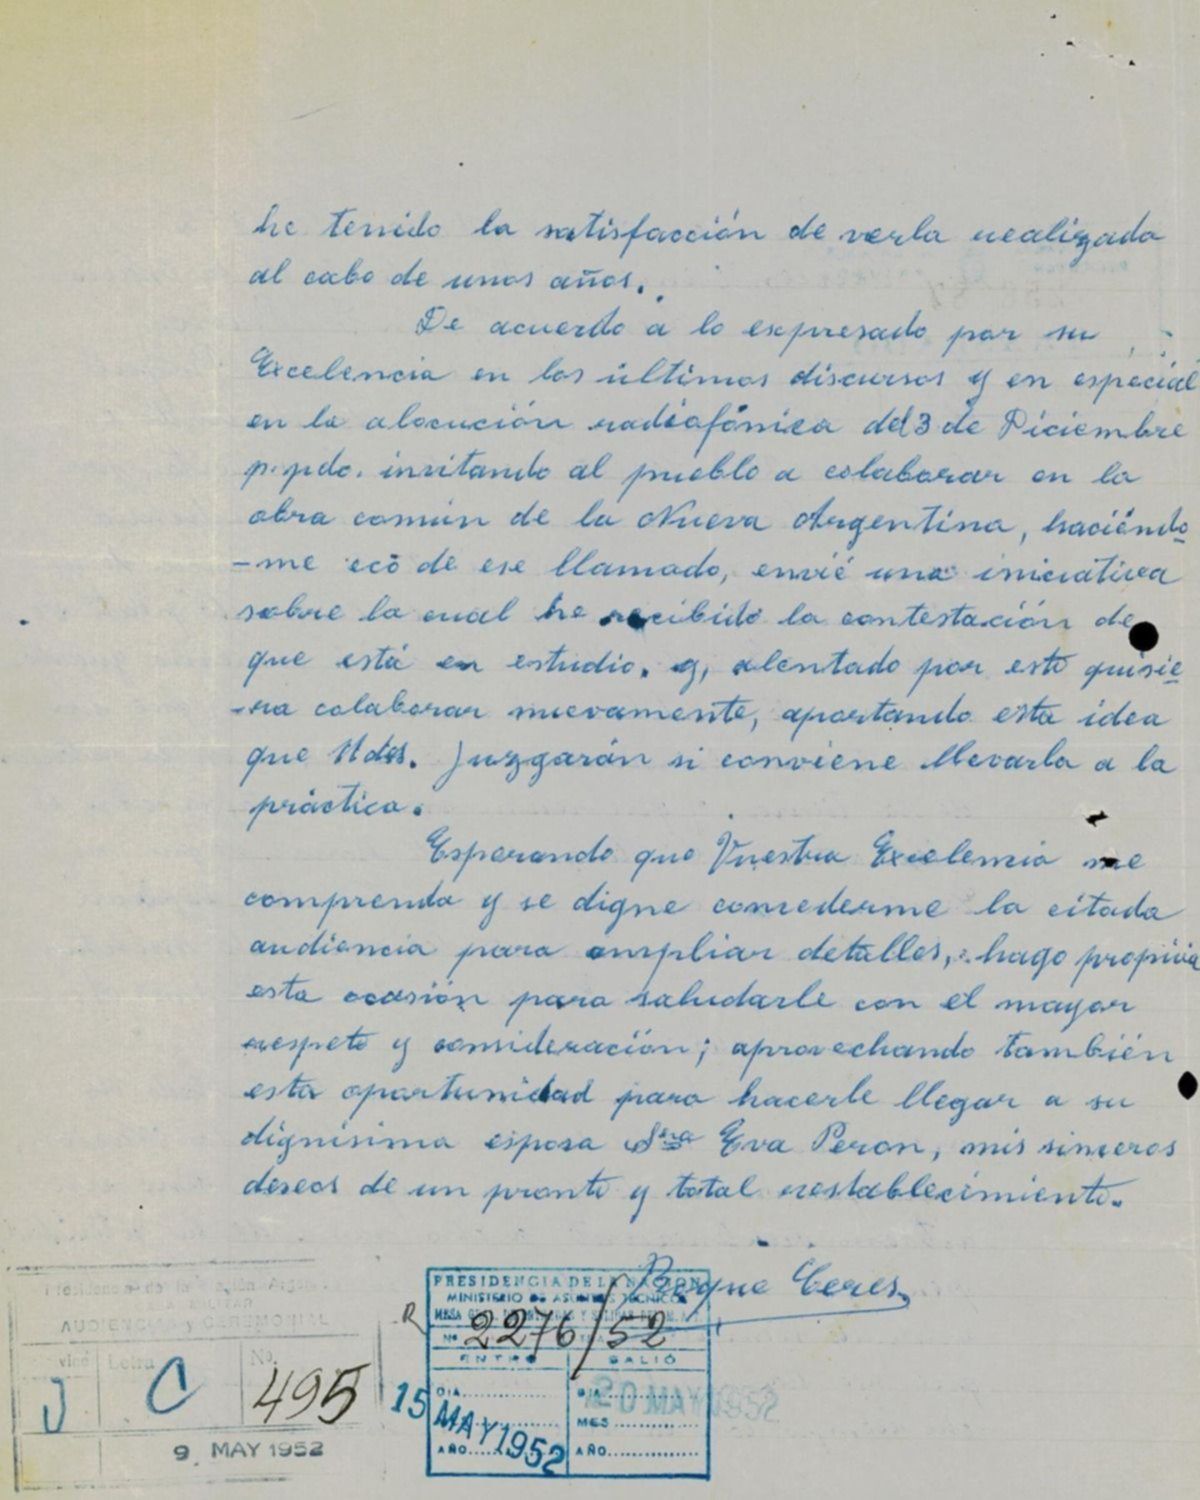 he tenido la satisfacción de verla realizada
al cabo de unos años.
De acuerdo a lo expresado por su
Excelencia en los últimos discursos y en especial
en la alocución radiofónica del 3 de Diciembre
p.pdo. invitando al pueblo a colaborar en la
obra común de la Nueva Argentina, haciéndo
-me eco de ese llamado, envié una iniciativa
sobre la cual he recibido la contestación de
que está en estudio. y, alentado por esto quisie
-ra colaborar nuevamente, aportando esta idea
que Udes. juzgarán si conviene llevarla a la
práctica.
Esperando que Vuestra Excelencia me
comprenda y se digne concederme la citada
audiencia para ampliar detalles, hago propicia
esta ocasión para saludarle con el mayor
respeto y consideración; aprovechando también
esta oportunidad para hacerle llegar a su
dignísima esposa Sra Eva Peron, mis sinceros
deseos de un pronto y total restablecimiento.
Roque Ceres
PRESIDENCIA DE LA NACION
MINISTERIO DE ASUNTOS TECNICOS
MESA
R
Nº 2276/52
ENTRÓ SALIÓ
DIA DIA
MES
AÑO AÑO
15 MAY 1952
20 MAY 1952
AUDIENCIA y CEREMONIAL
Letra Nº
J C 495
9 MAY 1952